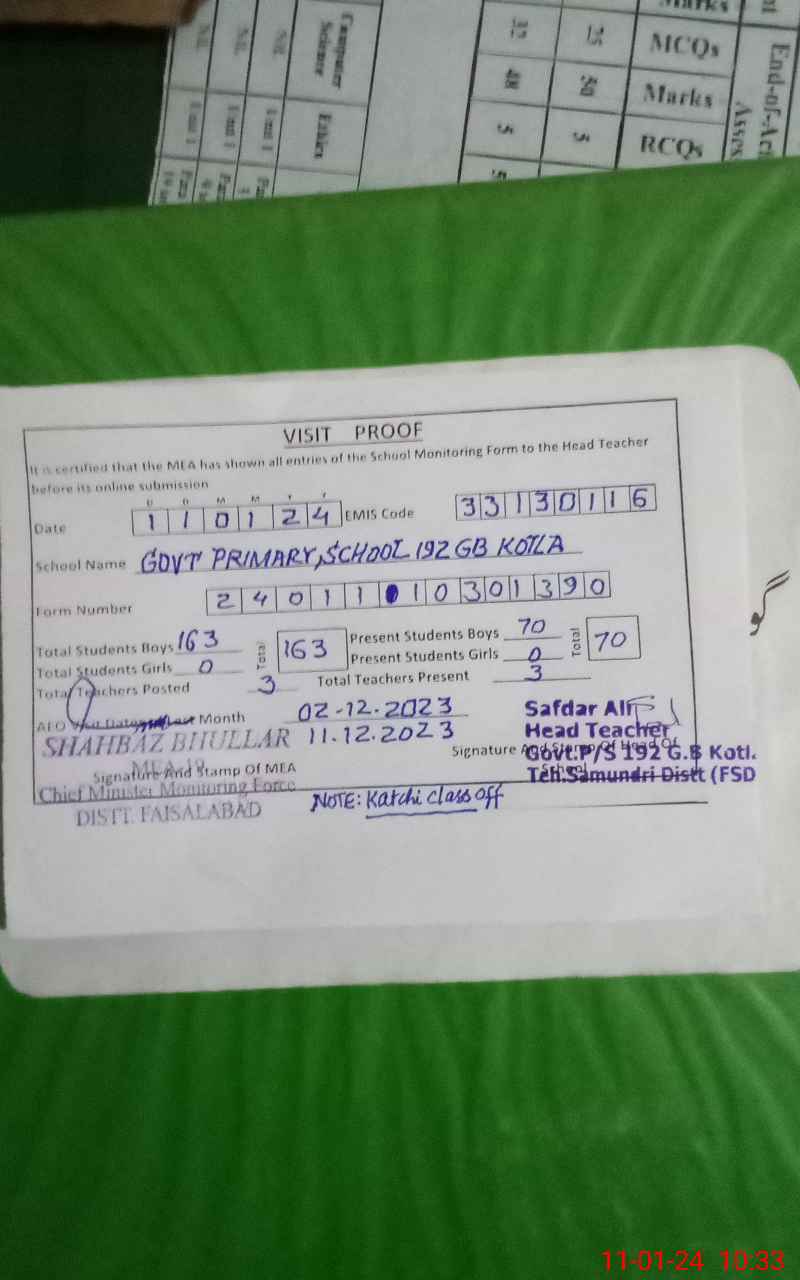 Computer Science
Ethics
Nil
Nil
Nil
1 and 1
1 and 1
1 and 1
35
15
MCQs
48
50
Marks
5
5
RCQs
End-of-
VISIT PROOF
It is certified that the MEA has shown all entries of the School Monitoring Form to the Head Teacher
before its online submission
D D M M Y Y
Date 1 1 0 1 2 4 EMIS Code 3 3 1 3 0 1 1 6
School Name GOVT PRIMARY, SCHOOL 192 GB KOTLA
Form Number 2 4 0 1 1 1 0 3 0 1 3 9 0
Total Students Boys 163 Total 163 Present Students Boys 70 Total 70
Total Students Girls 0 Present Students Girls 0
Total Teachers Posted 3 Total Teachers Present 3
AEO Visit Dates Last Month 02-12-2023
11.12.2023
SHAHBAZ BHULLAR
Signature And Stamp Of MEA
Chief Minister Monitoring Force
DISTT. FAISALABAD
Safdar Ali
Head Teacher
Signature And Stamp Of Head Of
School
Govt.P/S 192 G.B Kotl.
Teh.Samundri Distt (FSD
NOTE: Katchi class off
11-01-24 10:33